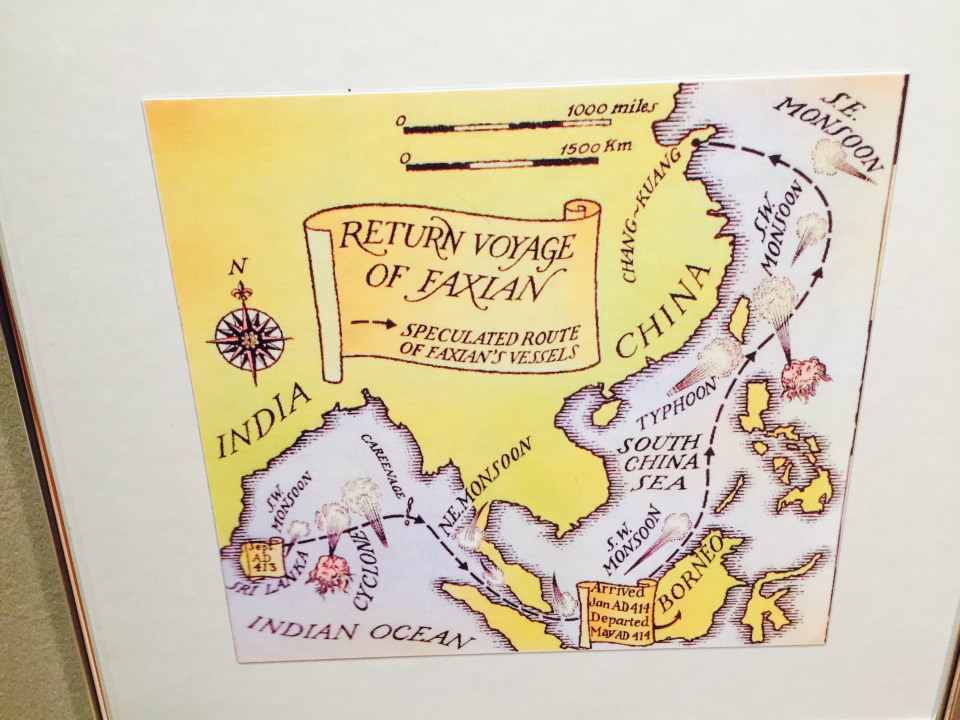 0 1000 miles
0 1500 Km
RETURN VOYAGE
OF FAXIAN
SPECULATED ROUTE
OF FAXIAN'S VESSELS
N
S.E.
MONSOON
S.W.
MONSOON
CHANG-KUANG
CHINA
INDIA
TYPHOON
SOUTH
CHINA
SEA
CAREENAGE
N.E. MONSOON
S.W.
MONSOON
S.W.
MONSOON
Sept
AD
413
SRI LANKA
CYCLONE
BORNEO
Arrived
Jan AD 414
Departed
May AD 414
INDIAN OCEAN